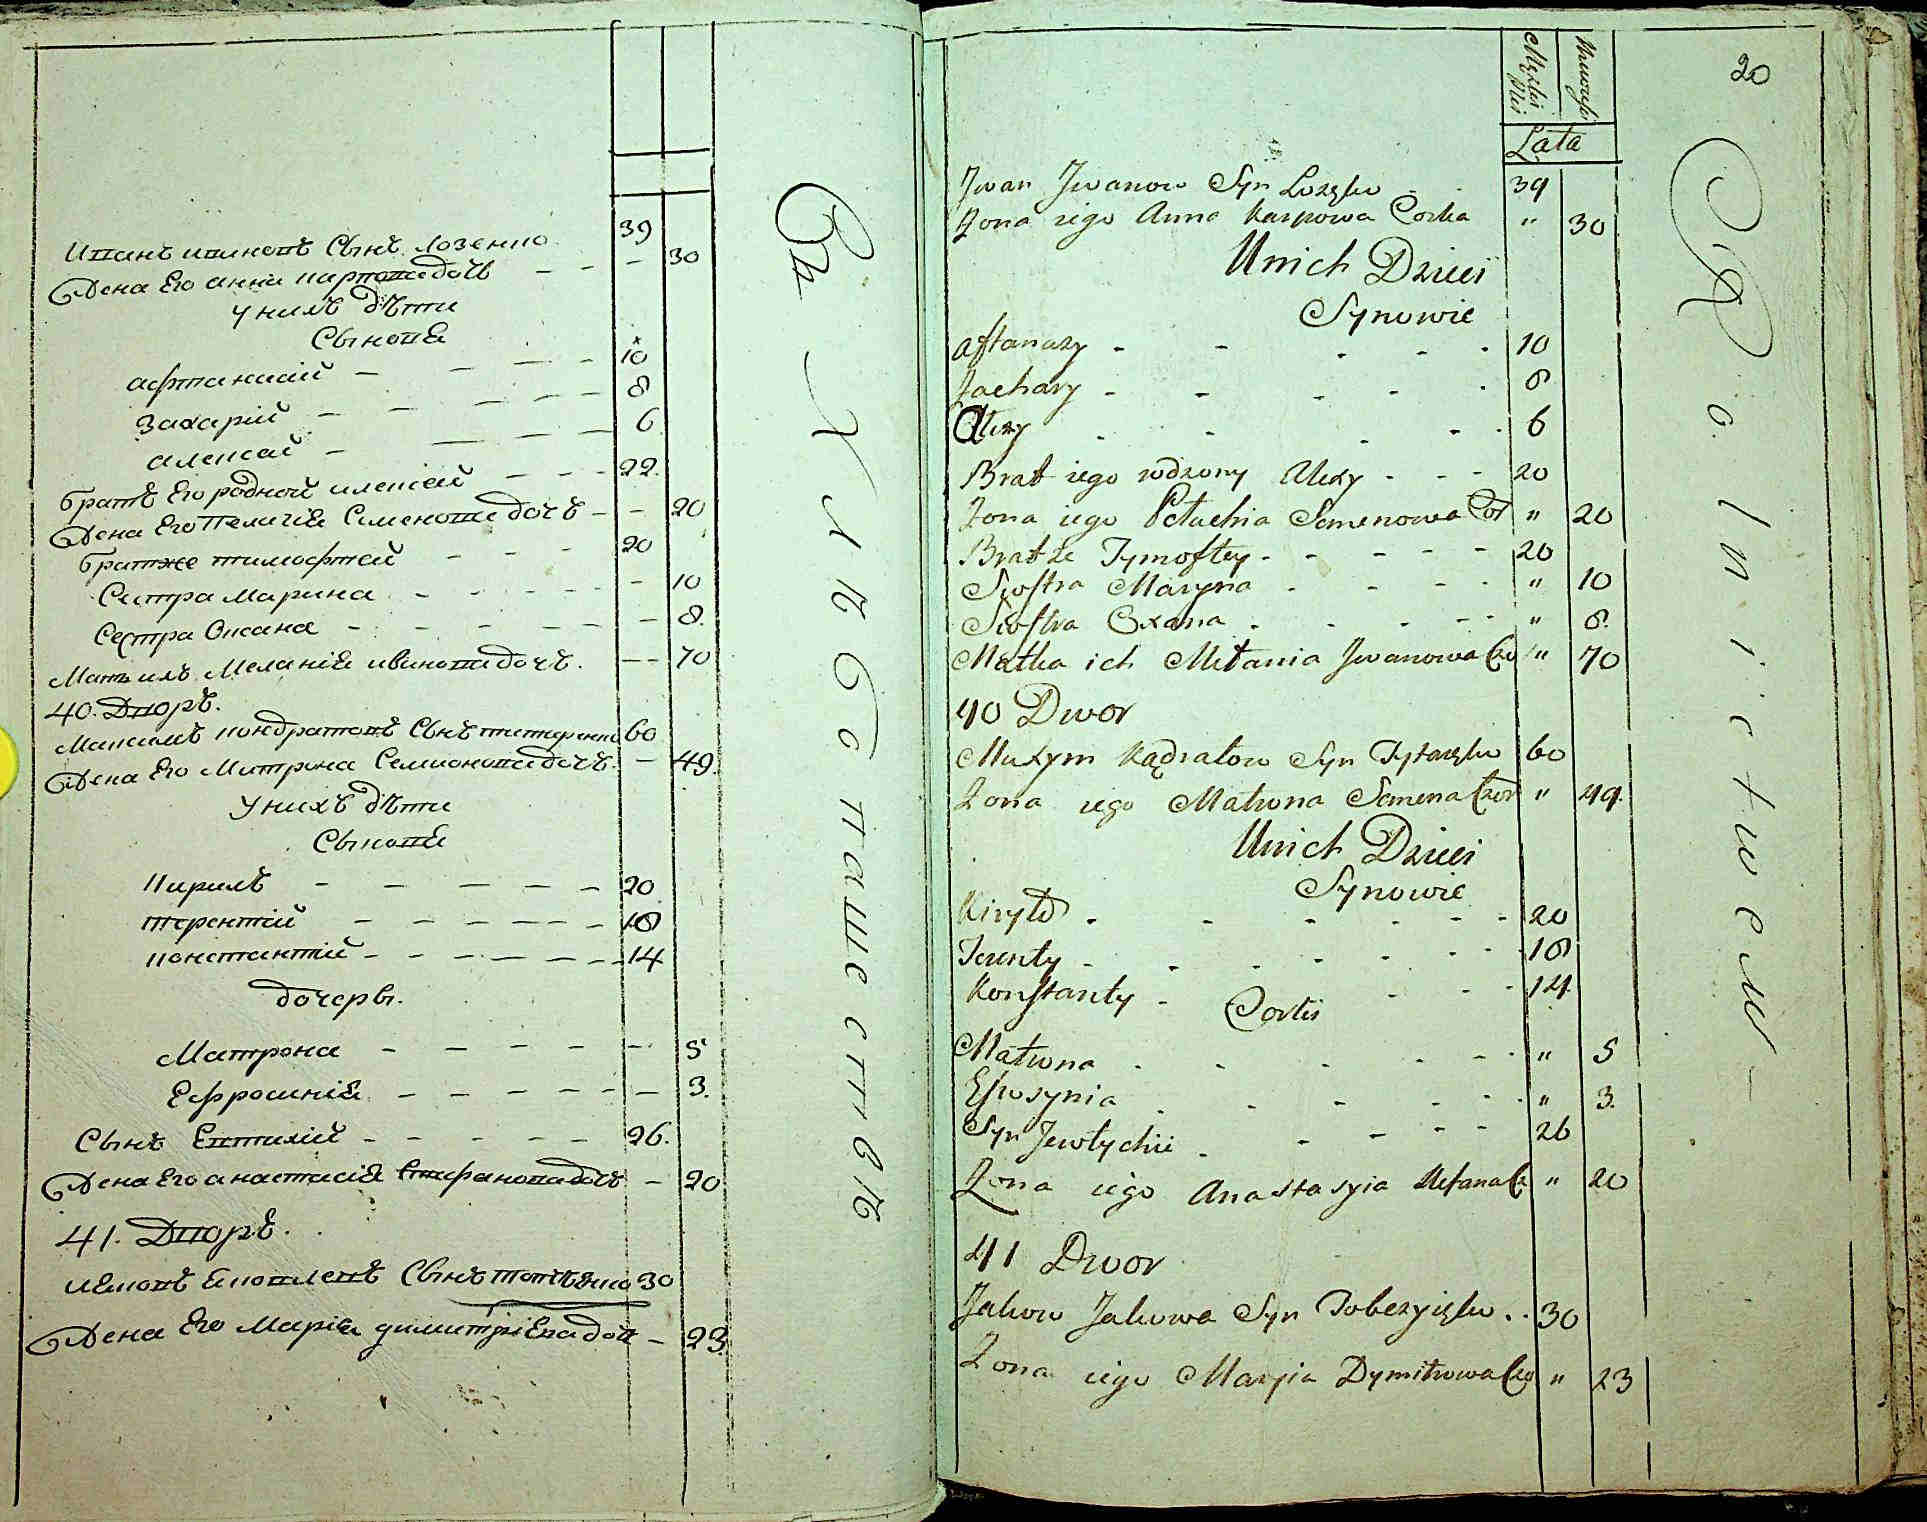 Иванъ ивановъ Сынъ лозенко 39
Жена Его анна карповадочь — 30
У нихъ дѣти
Сыновья
афтанасий 10
захарий 8
алексай 6
братъ Его родной алексей 22.
Жена Его Пелагия Семеновадочъ — 20
братже тимофтей 20
Сестра Марина — 10
Сестра Оксана — 8.
Мать ихъ Мелания ивановадочъ. — 70
40. Дворъ.
Максимъ кондратовъ Сынъ 60
Жена Его Митрона Семионовадочъ. — 49.
У нихъ дѣти
Сыновья
Кирилъ 20
терентий 18
константий 14
дочеры.
Матрона — 5
Ефросиния — 3.
Сынъ Евтихий 26.
Жена Его анастасия Стифановадочъ — 20
41. Дворъ.
Сынъ 30
Жена Его Мария димитриевадоч — 23.
Въ Хлибопашествѣ
20
Męzkiey Płci
Lata
Jwan Jwanow Syn Łozęko 39
Zona iego Anna Karpowa Corka " 30
Unich Dzieci
Synowie
Aftanazy 10
Zachary 8
Alexy 6
Brat iego rodzony Alexy 20
Zona iego Pełachia Semenowa Cor " 20
Bratże Tymoftey 20
Siostra Maryna " 10
Siostra Oxana " 8.
Matka ich Mełania Jwanowa Czo " 70
40 Dwor
Maxym Kądratow Syn 60
Zona iego Matrona Semena Czor " 49.
Unich Dzieci
Synowie
Kiryło 20
Terenty 18
Konstanty 14
Corki
Matrona " 5
Efrosynia " 3.
Syn Jewtychii 26
Zona iego Anastasyia Stefana Cz " 20
41 Dwor
Jakow Jakowa Syn 30
Zona iego Maryia Dymitrowa Czo " 23
W Rolnictwem